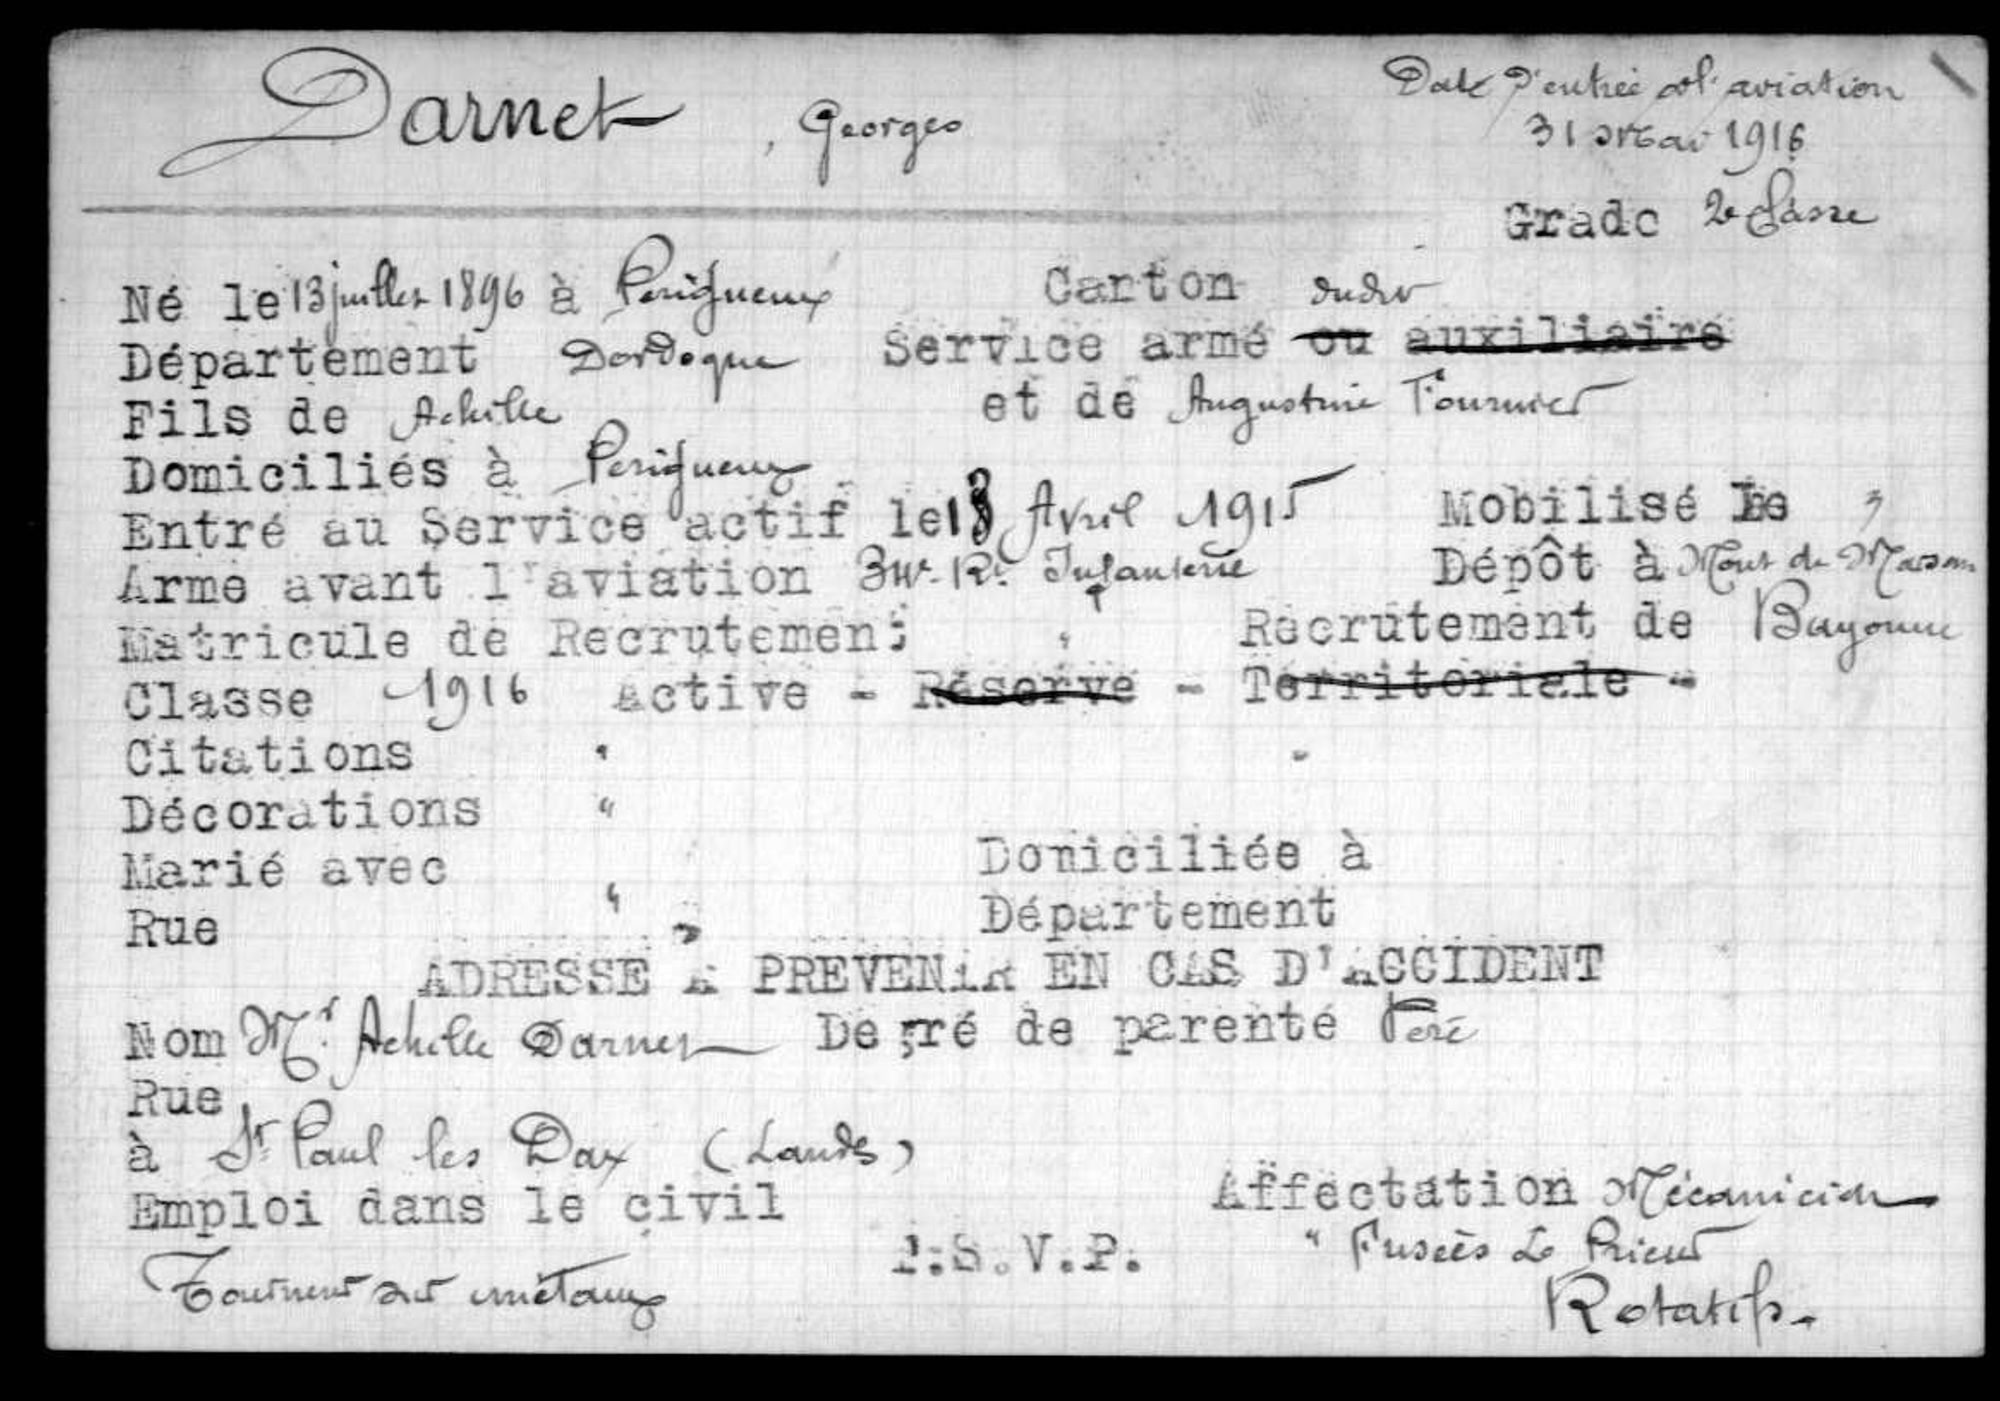 Darnet, Georges
Date d'entrée à l'aviation
31 Mai 1916
Grade 2e Classe
Né le 13 juillet 1896 à Perigueux Canton dudit
Département Dordogne Service armé ou auxiliaire
Fils de Achille et de Augustine Fournier
Domiciliés à Perigueux
Entré au Service actif le 13 Avril 1915 Mobilisé le "
Arme avant l'aviation 34e Rt Infanterie Dépôt à Mont de Marsan
Matricule de Recrutement " Recrutement de Bayonne
Classe 1916 Active - Réserve - Territoriale -
Citations "
Décorations "
Marié avec " Domiciliée à
Rue " Département
ADRESSE A PREVENIR EN CAS D'ACCIDENT
Nom Mr Achille Darnet Degré de parenté Père
Rue
à St Paul les Dax (Landes)
Emploi dans le civil Affectation Mécanicien
Tourneur sur métaux P.S.V.P. " Fusées Le Prieur
Rotatifs.